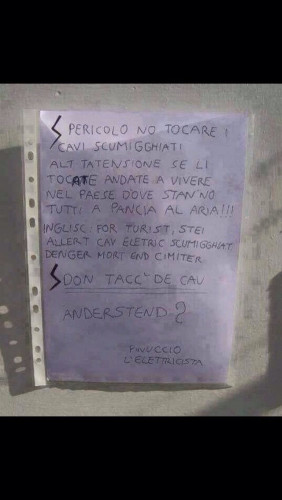 PERICOLO NO TOCARE I
CAVI SCUMIGGHIATI
ALT TATENSIONE SE LI
TOCATE ANDATE A VIVERE
NEL PAESE DOVE STAN'NO
TUTTI A PANCIA AL ARIA!!!
INGLISC: FOR TURIST, STEI
ALLERT CAV ELETRIC SCUMIGGHIAT
DENGER MORT END CIMITER
DON TACC' DE CAV
ANDERSTEND?
PINUCCIO
L'ELETTRICISTA